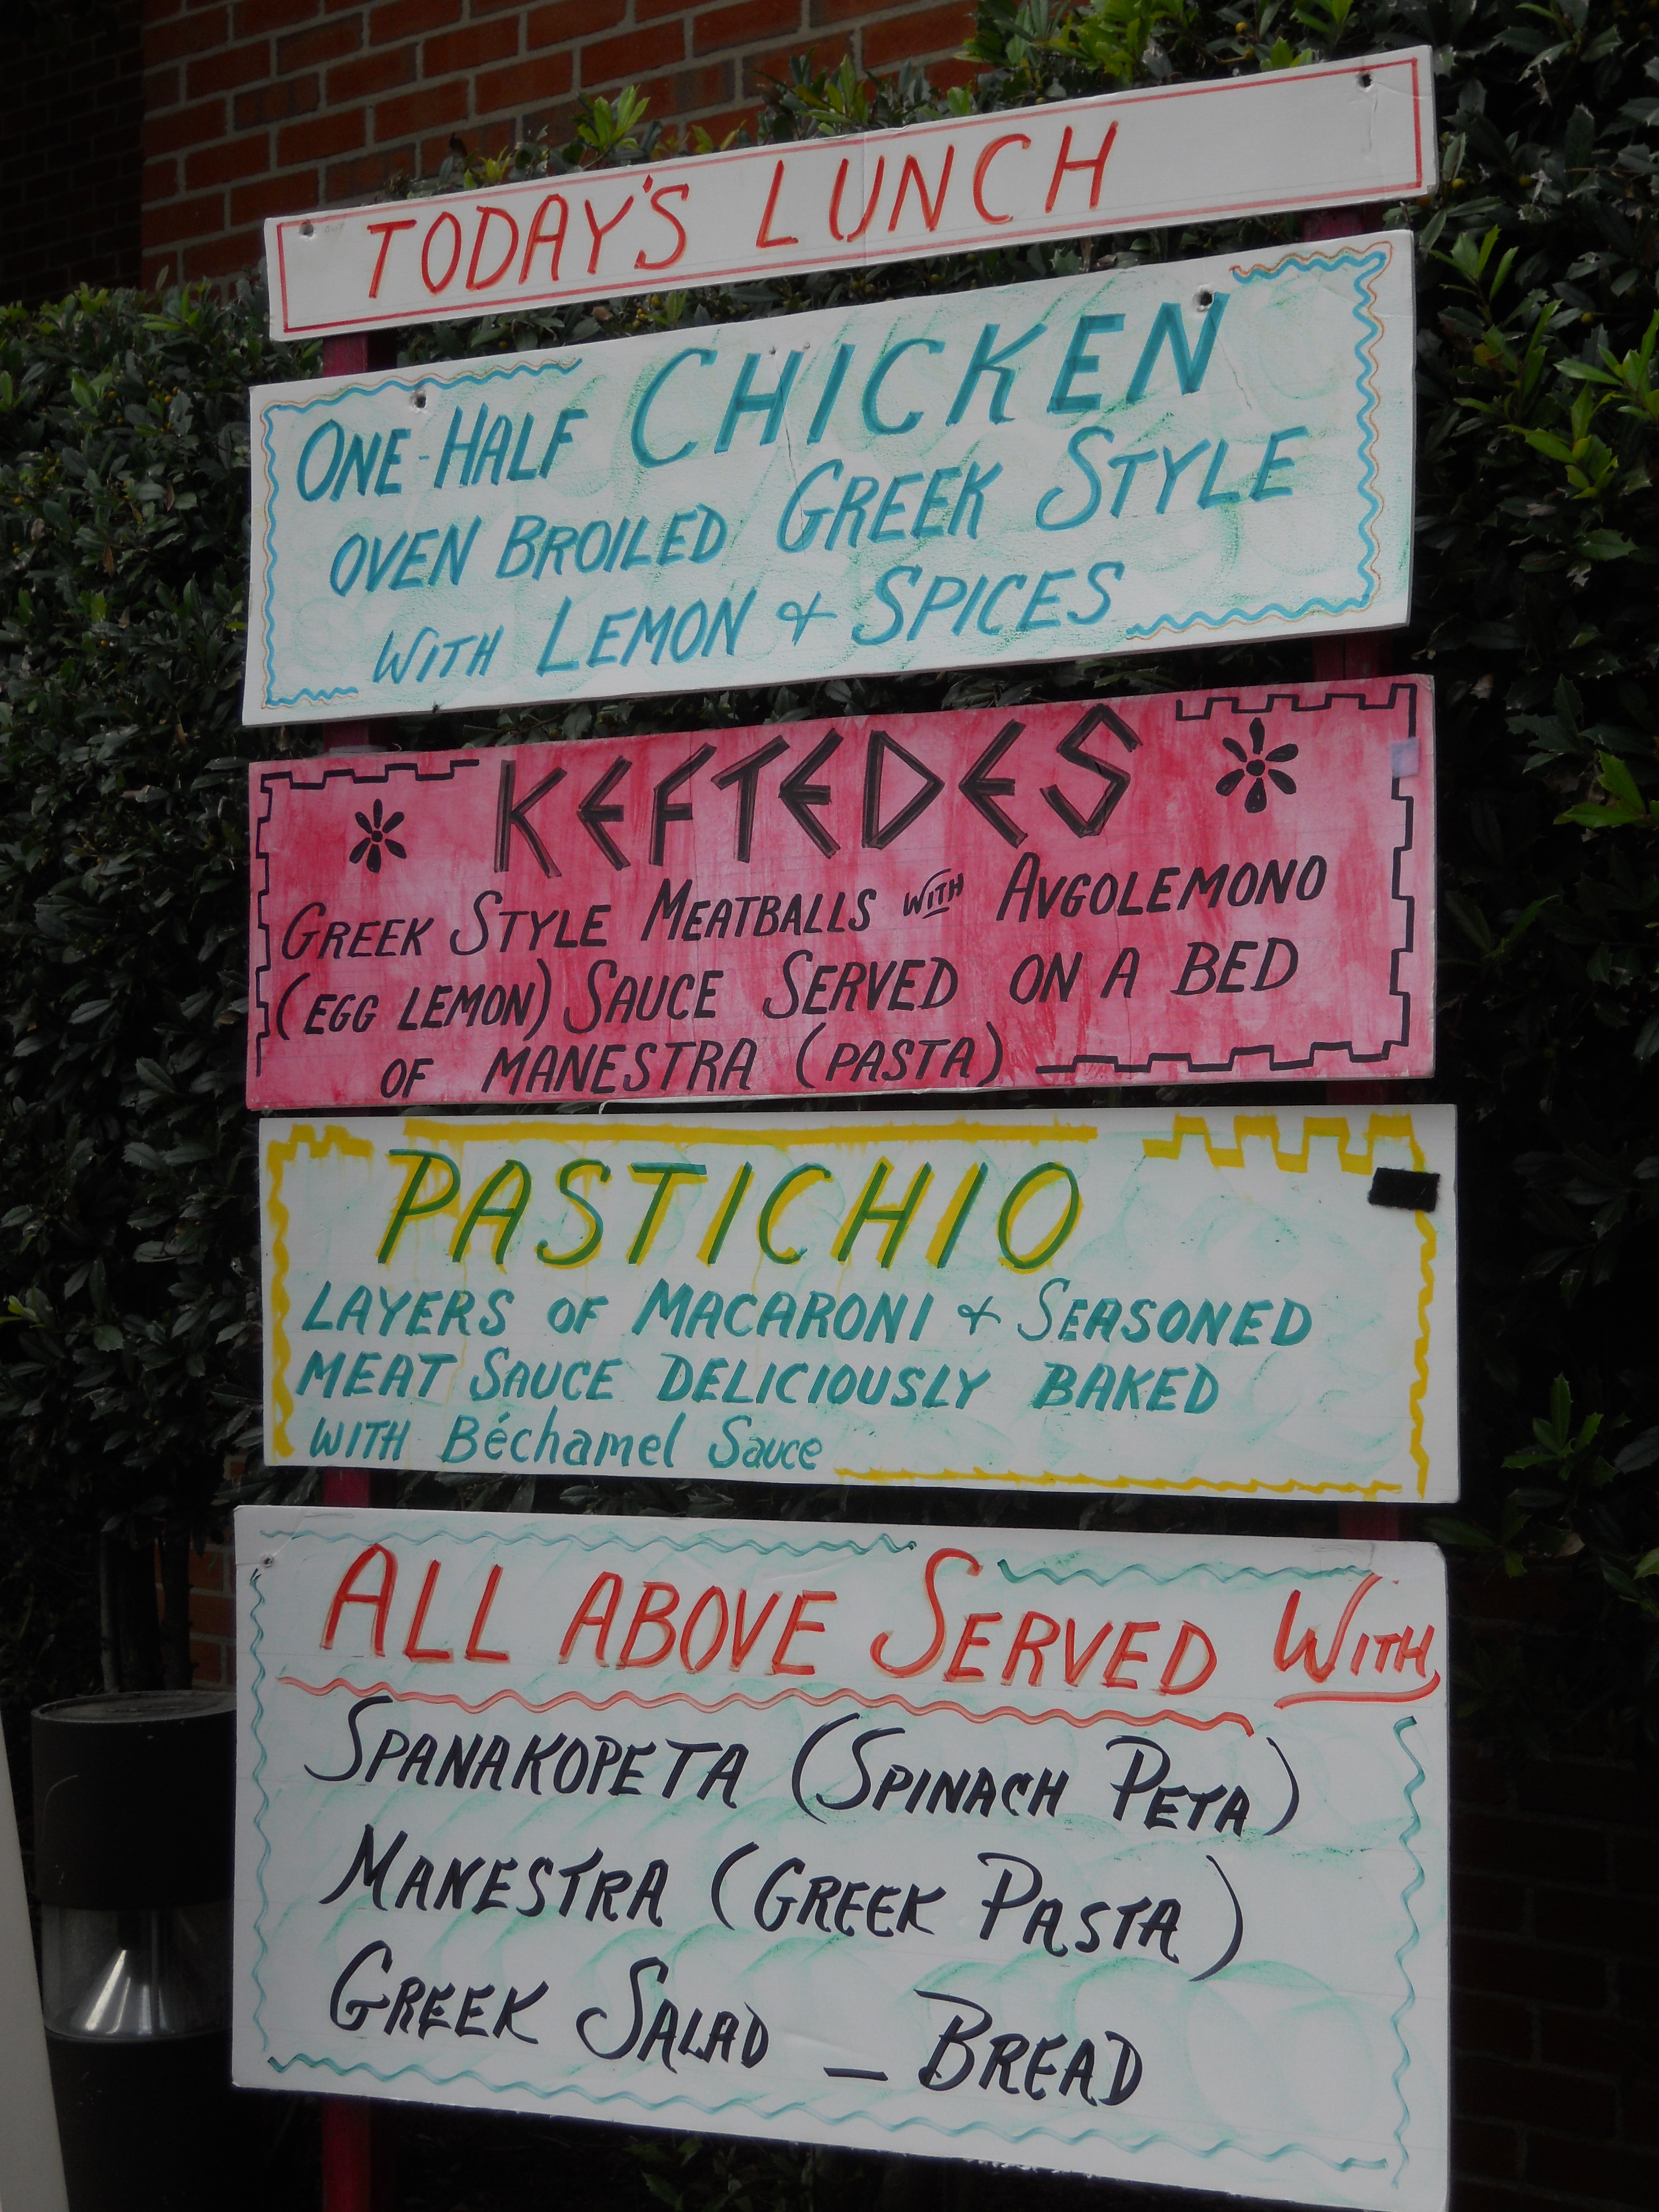 TODAY'S LUNCH
ONE-HALF CHICKEN
OVEN BROILED GREEK STYLE
WITH LEMON & SPICES
KEFTEDES
GREEK STYLE MEATBALLS WITH AVGOLEMONO
(EGG LEMON) SAUCE SERVED ON A BED
OF MANESTRA (PASTA)
PASTICHIO
LAYERS OF MACARONI & SEASONED
MEAT SAUCE DELICIOUSLY BAKED
WITH Béchamel Sauce
ALL ABOVE SERVED WITH
SPANAKOPETA (SPINACH PETA)
MANESTRA (GREEK PASTA)
GREEK SALAD - BREAD